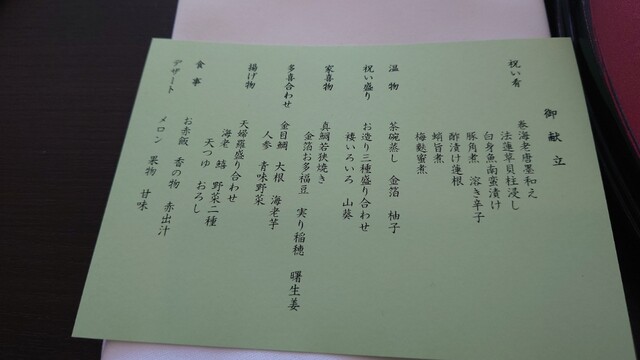 御献立
祝い肴
巻海老唐墨和え
法蓮草貝柱浸し
白身魚南蛮漬け
豚角煮 溶き辛子
酢漬け蓮根
蛸旨煮
梅麩蜜煮
温物
茶碗蒸し 金箔 柚子
祝い盛り
お造り三種盛り合わせ
褄いろいろ 山葵
家喜物
真鯛若狭焼き
金箔お多福豆 実り稲穂 曙生姜
多喜合わせ
金目鯛 大根 海老芋
人参 青味野菜
揚げ物
天婦羅盛り合わせ
海老 鱚 野菜二種
天つゆ おろし
食事
お赤飯 香の物 赤出汁
デザート
メロン 果物 甘味